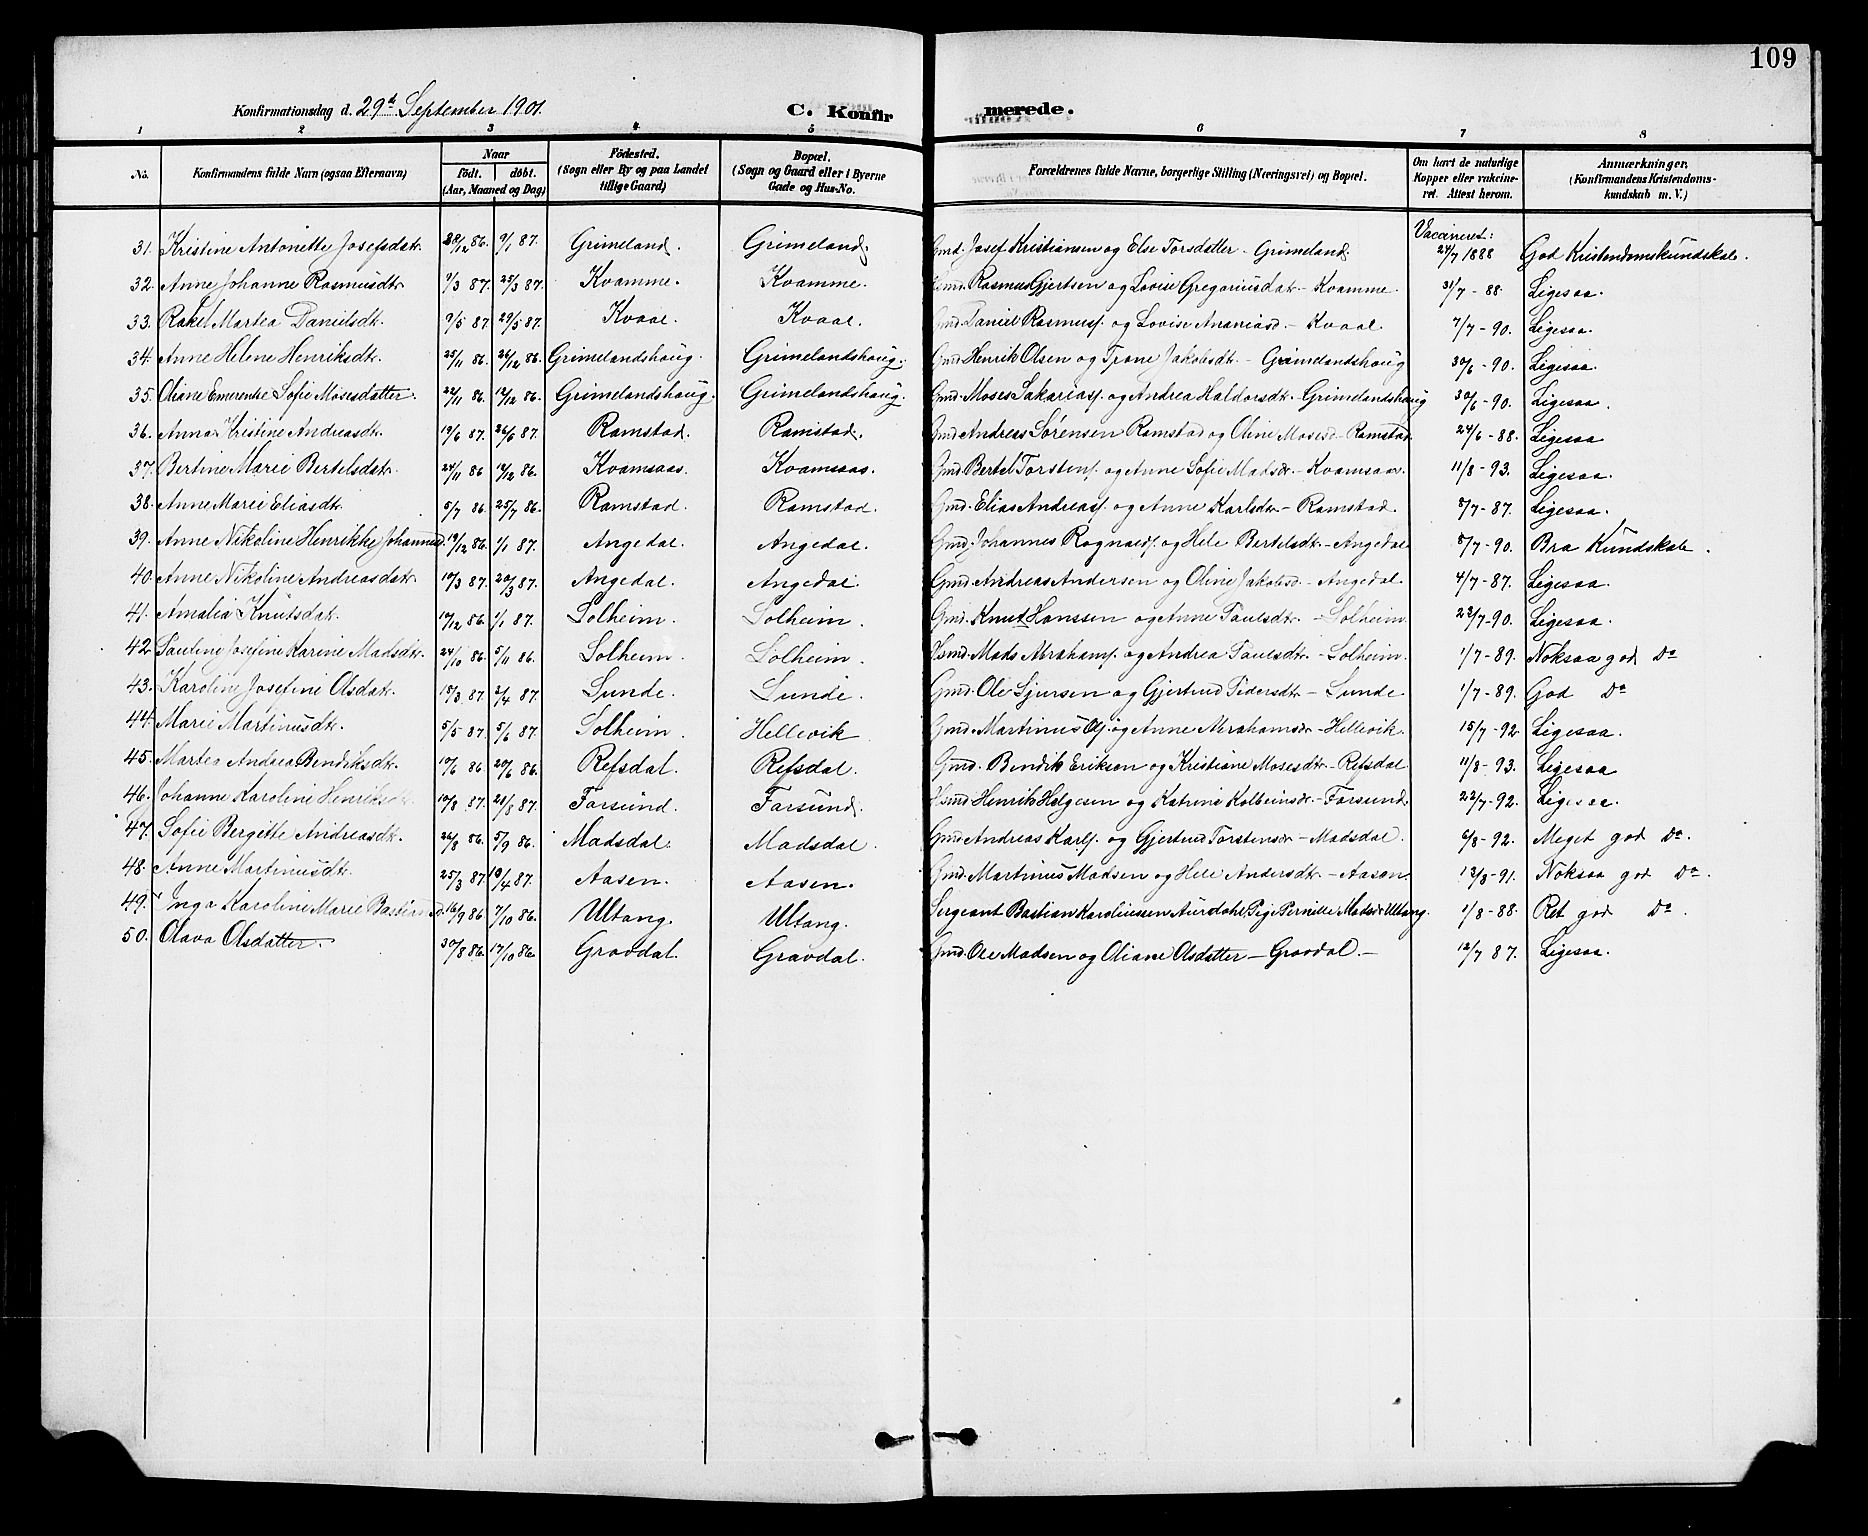 109
Konfirmationsdag d. 29de September 1901. C. Konfirmerede.
1 2 3 4 5 6 7 8
No. Konfirmandens fulde Navn (ogsaa Efternavn) Naar født. døbt. (Aar, Maaned og Dag) Fødested. (Sogn eller By og paa Landet tillige Gaard) Bopæl. (Sogn og Gaard eller i Byerne Gade og Hus-No. Forældrenes fulde Navne, borgerlige Stilling (Næringsvei) og Bopæl. Om havt de naturlige Kopper eller vakcineret. Attest herom. Anmærkninger. (Konfirmandens Kristendomskundskab m. V.)
Vaccineret:
31. Kristine Antonette Josefsdatr. 28/12 86. 9/1 87. Grimeland. Grimeland. Gmd. Josef Kristiansen og Else Torsdatter - Grimeland. 24/7 1888 God Kristendomskundskab.
32. Anne Johanne Rasmusdtr. 9/3 87. 25/3 87. Kvamme. Kvamme. Hsmd. Rasmus Gjertsen og Lovise Gregoriusdatr. - Kvamme. 31/7 - 88 Ligesaa.
33. Rakel Martea Danielsdt. 9/5 87. 29/5 87. Kvaal. Kvaal. Gmd. Daniel Rasmusf. og Lovise Ananiasd. - Kvaal. 7/7 - 90. Ligesaa.
34. Anne Helene Henriksdtr. 25/11 86. 26/12 86. Grimelandshaug. Grimelandshaug. Gmd. Henrik Olsen og Trone Jakobsdtr. - Grimelandshaug 30/6 - 90. Ligesaa.
35. Oliane Emerentse Sofie Mosesdatter. 22/11 86. 12/12 86. Grimelandshaug. Grimelandshaug. Gmd. Moses Sakariasf. og Andrea Haldorsdtr. - Grimelandshaug 30/6 - 90. Ligesaa.
36. Anna Kristine Andreasdtr. 19/6 87. 26/6 87. Ramstad. Ramstad. Gmd. Andreas Sørensen Ramstad og Oline Mosesd. - Ramstad. 24/6 - 88. Ligesaa
37. Bertine Marie Bertelsdatr. 24/11 86 12/12 86. Kvamsaas. Kvamsaas. Gmd. Bertel Torstenf. og Anne Sofie Madsdr. - Kvamsaas. 11/8 - 93. Ligesaa.
38. Anne Marie Eliasdtr. 5/7 86. 25/7 86. Ramstad. Ramstad. Gmd. Elias Andreasf. og Anne Karlsdr. - Ramstad. 8/7 - 87. Ligesaa.
39. Anne Nikoline Henrikke Johannesd. 19/12 86. 1/1 87. Angedal. Angedal. Gmd. Johannes Rognaldf. og Hele Bertelsdtr. - Angedal 8/7 - 90. Bra Kundskab.
40. Anne Nikoline Andreasdatr. 10/3 87. 20/3 87. Angedal. Angedal. Gmd. Andreas Andersen og Oline Jakobsd. - Angedal. 4/7 - 87. Ligesaa.
41. Amalia Knutsdatr. 17/12 86. 1/1 87. Solheim. Solheim. Gmd. Knut Hanssen og Anne Paulsdtr. - Solheim. 22/7 - 90. Ligesaa.
42 Pauline Josefine Karine Madsdtr. 24/10 86. 5/11 86. Solheim. Solheim. Hsmd. Mads Abrahamf. og Andrea Paulsdtr. - Solheim. 1/7 - 89. Noksaa god Do
43. Karoline Josefine Olsdatr. 15/3 87. 2/4 87. Sunde. Sunde. Gmd. Ole Sjursen og Gjertrud Pedersdtr. - Sunde 1/7 - 89. God Do
44. Marie Martinusdtr. 5/5 87. 5/6 87. Solheim. Hellevik. Gmd. Martinus Olf. og Anne Abrahamsdr. - Hellevik. 15/7 - 92. Ligesaa.
45. Martea Andrea Bendiksdtr. 10/6 86. 20/6 86. Refsdal. Refsdal. Gmd. Bendik Eriksen og Kristiane Mosesdtr. - Refsdal 11/8 - 93. Ligesaa
46. Johanne Karoline Henriksdr. 10/8 87. 21/8 87. Farsund. Farsund. Hsmd. Henrik Helgesen og Katrine Kolbeinsdr. - Farsund. 22/7 - 92. Ligesaa.
47. Sofie Bergitte Andreasdtr. 26/8 86. 5/9 86. Madsdal. Madsdal. Gmd. Andreas Karlf. og Gjertrud Torstensdr. - Madsdal. 6/8 - 92. Meget god Do
48. Anne Martinusdtr. 25/3 87. 10/4 87. Aasen. Aasen. Gmd. Martinus Madsen og Hele Andersdtr. - Aasen. 12/8 - 91. Noksaa god Do.
49. Inga Karoline Marie Bastiansd. 16/9 86 7/10 86. Ultang. Ultang. Sergeant Bastian Karoliussen Aurdahl, Pige Pernille Madsdr. Ultang. 1/8 - 88. Ret god Do.
50. Olava Olsdatter. 30/8 86. 17/10 86. Gravdal. Gravdal. Gmd. Ole Madsen og Oliane Olsdatter - Gravdal. - 12/7 87. Ligesaa.